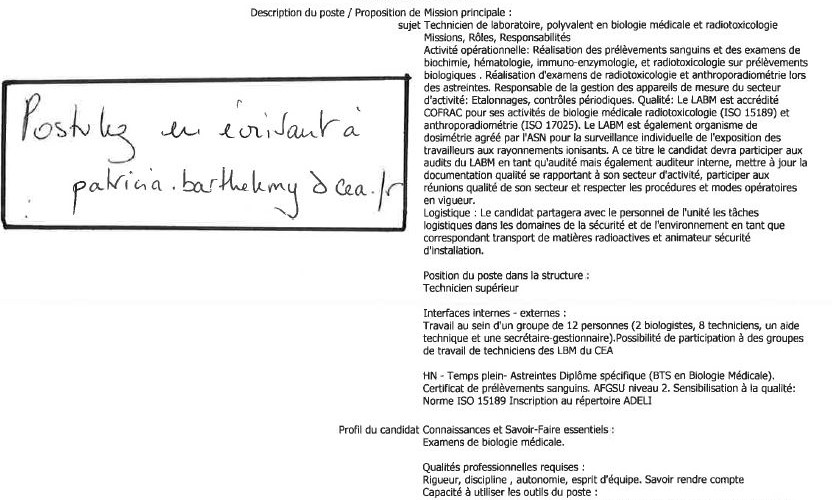 Description du poste / Proposition de Mission principale :
sujet Technicien de laboratoire, polyvalent en biologie médicale et radiotoxicologie
Missions, Rôles, Responsabilités
Activité opérationnelle: Réalisation des prélèvements sanguins et des examens de
biochimie, hématologie, immuno-enzymologie, et radiotoxicologie sur prélèvements
biologiques . Réalisation d'examens de radiotoxicologie et anthroporadiométrie lors
des astreintes. Responsabie de la gestion des appareils de mesure du secteur
d'activité: Etalonnages, contrôles périodiques. Qualité: Le LABM est accrédité
COFRAC pour ses activités de biologie médicale radiotoxicologie (ISO 15189) et
anthroporadiométrie (ISO 17025). Le LABM est également organisme de
dosimétrie agréé par l'ASN pour la surveillance individuelle de l'exposition des
travailleurs aux rayonnements ionisants. A ce titre le candidat devra participer aux
audits du LABM en tant qu'audité mais également auditeur interne, mettre à jour la
documentation qualité se rapportant à son secteur d'activité, participer aux
réunions qualité de son secteur et respecter les procédures et modes opératoires
en vigueur.
Logistique : Le candidat partagera avec le personnel de l'unité les tâches
logistiques dans les domaines de la sécurité et de l'environnement en tant que
correspondant transport de matières radioactives et animateur sécurité
d'installation.
Postulez en écrivant à
patricia.barthelemy@cea.fr
Position du poste dans la structure :
Technicien supérieur
Interfaces internes - externes :
Travail au sein d'un groupe de 12 personnes (2 biologistes, 8 techniciens, un aide
technique et une secrétaire-gestionnaire).Possibilité de participation à des groupes
de travail de techniciens des LBM du CEA
HN - Temps plein- Astreintes Diplôme spécifique (BTS en Biologie Médicale).
Certificat de prélèvements sanguins. AFGSU niveau 2. Sensibilisation à la qualité:
Norme ISO 15189 Inscription au répertoire ADELI
Profil du candidat Connaissances et Savoir-Faire essentiels :
Examens de biologie médicale.
Qualités professionnelles requises :
Rigueur, discipline , autonomie, esprit d'équipe. Savoir rendre compte
Capacité à utiliser les outils du poste :